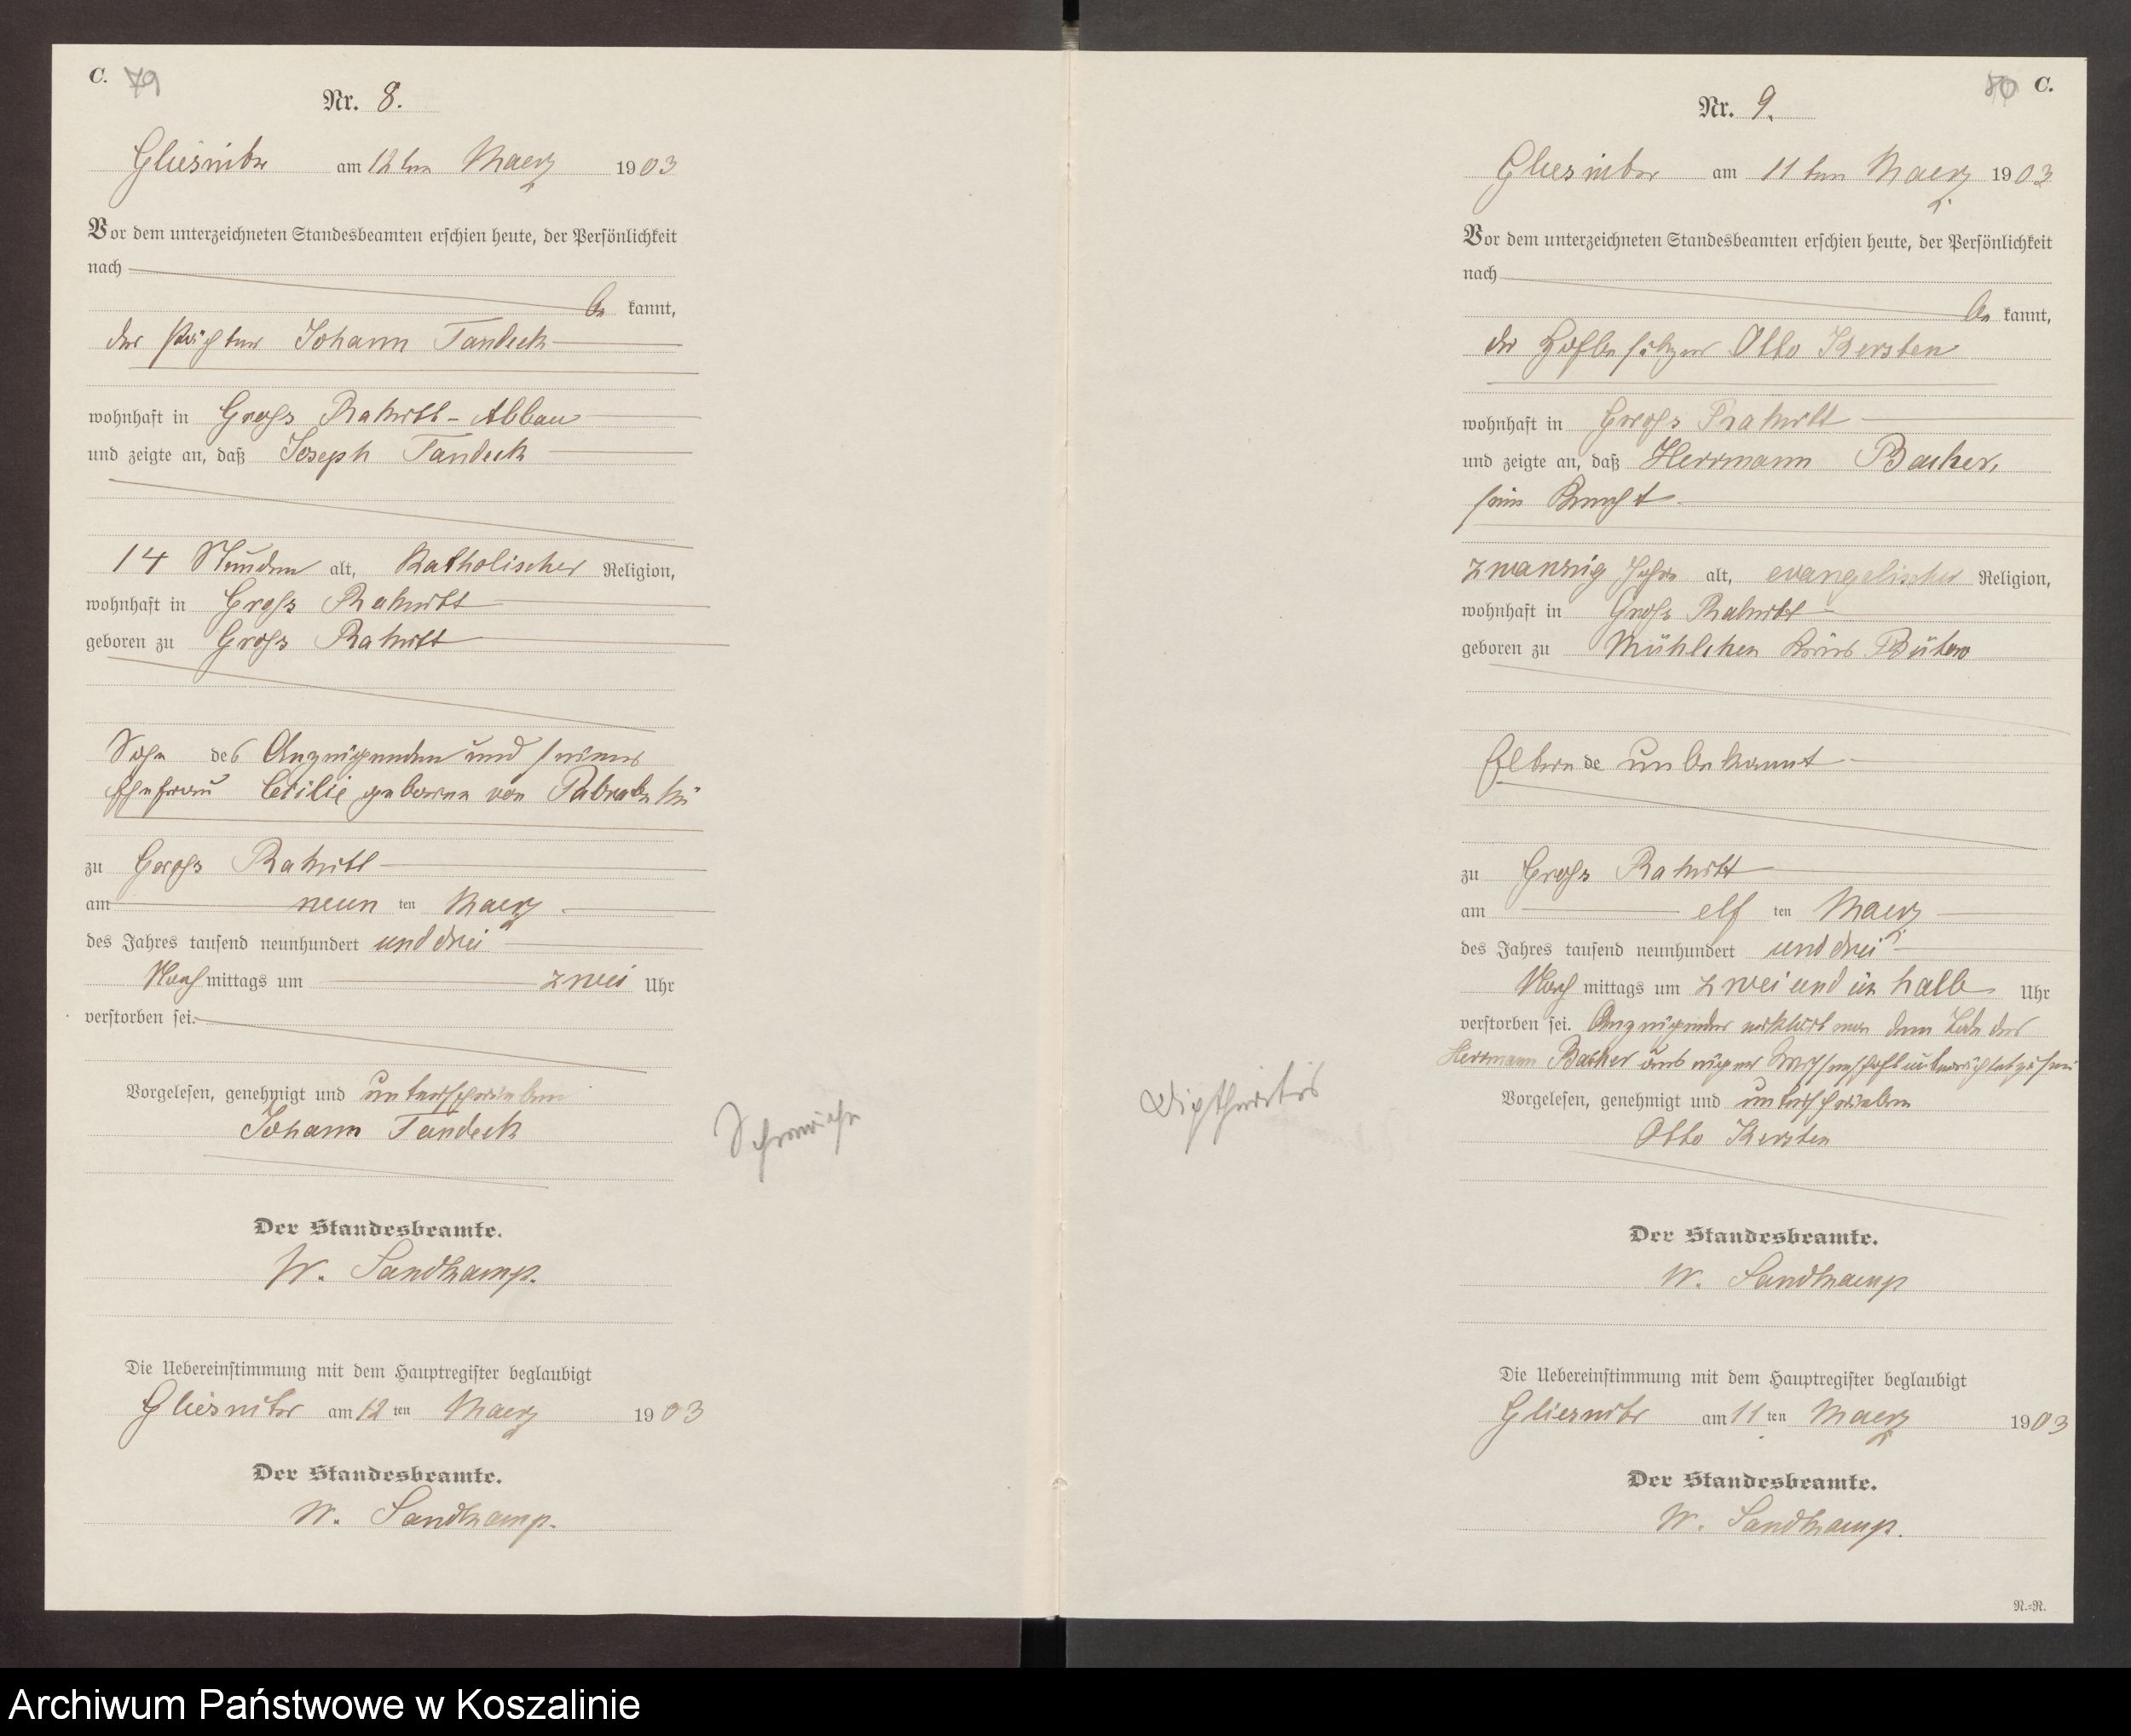 C. 79
Nr. 8.
Gliesnitz am 12ten Maerz 1903
Vor dem unterzeichneten Standesbeamten erschien heute, der Persönlichkeit
nach
be kannt,
der Pächter Johann Tandeck
wohnhaft in Gross Rakitt-Abbau
und zeigte an, daß Joseph Tandeck
14 Stunden alt, Katholischer Religion,
wohnhaft in Gross Rakitt
geboren zu Gross Rakitt
Sohn des Anzeigenden und seiner
Ehefrau Cecilie geborene von
zu Gross Rakitt
am neun ten Maerz
des Jahres tausend neunhundert und drei
Nach mittags um zwei Uhr
verstorben sei.
Vorgelesen, genehmigt und unterschrieben
Johann Tandeck
Der Standesbeamte.
W. Sandkamp.
Die Uebereinstimmung mit dem Hauptregister beglaubigt
Gliesnitz am 12 ten Maerz 1903
Der Standesbeamte.
W. Sandkamp.
Schwäche
80 C.
Nr. 9.
Gliesnitz am 11ten Maerz 1903
Vor dem unterzeichneten Standesbeamten erschien heute, der Persönlichkeit
nach
be kannt,
der Hofbesitzer Otto Kersten
wohnhaft in Gross Rakitt
und zeigte an, daß Herrmann Backer,
sein Knecht
zwanzig Jahre alt, evangelischer Religion,
wohnhaft in Gross Rakitt
geboren zu Mühlchen Kreis Bütow
Eltern de unbekannt
zu Gross Rakitt
am elf ten Maerz
des Jahres tausend neunhundert und drei
Nach mittags um zwei und ein halb Uhr
verstorben sei. Anzeigender erklärt von dem Tode des
Herrmann Backer aus eigener Wissenschaft unterrichtet zu sein
Vorgelesen, genehmigt und unterschrieben
Otto Kersten
Diphtheritis
Der Standesbeamte.
W. Sandkamp
Die Uebereinstimmung mit dem Hauptregister beglaubigt
Gliesnitz am 11 ten Maerz 1903
Der Standesbeamte.
W. Sandkamp.
N.=N.
Archiwum Państwowe w Koszalinie